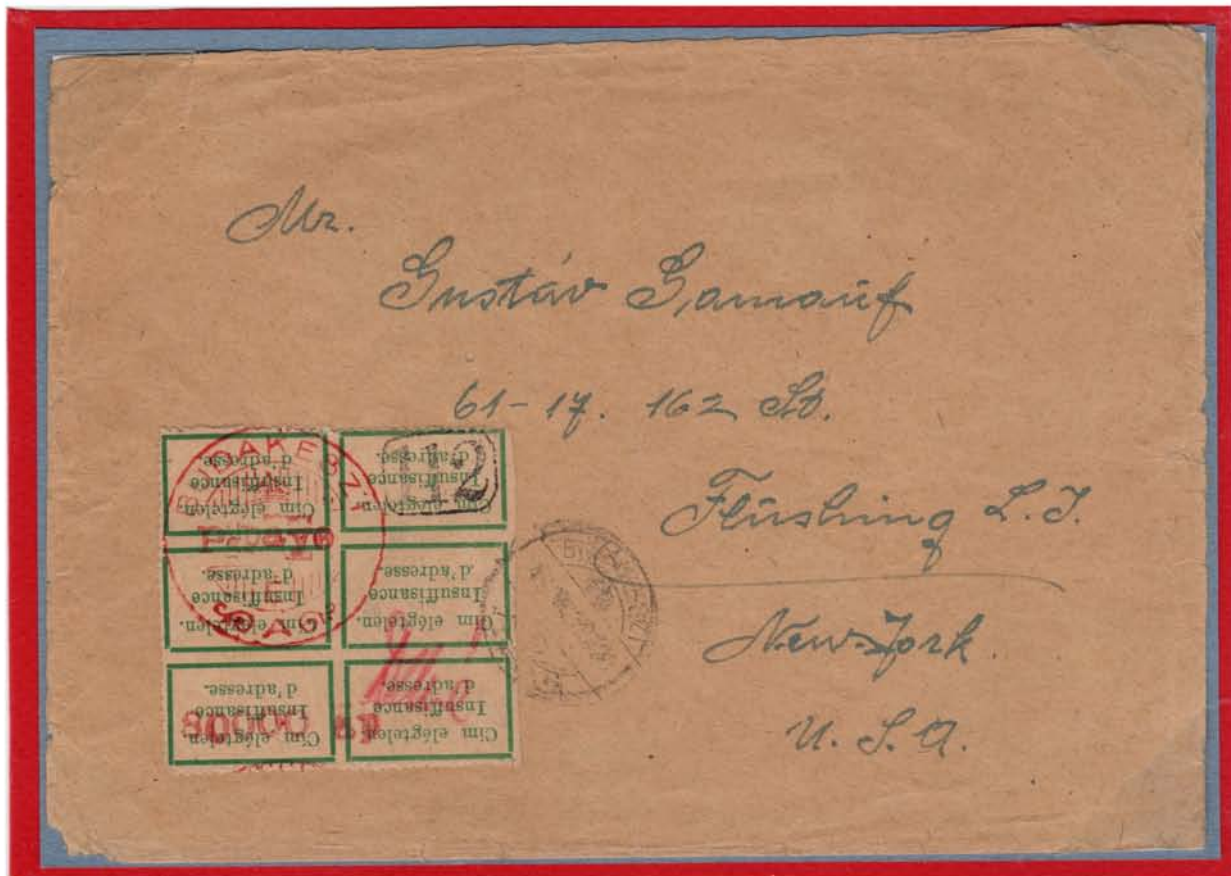 Mr.
Gustáv Gamauf
61-17. 162 St.
Flushing L.I.
New-York
U.S.A.
BUDAKESZI
112
Cim elégtelen.
Insuffisance
d'adresse.
Cim elégtelen.
Insuffisance
d'adresse.
Cim elégtelen.
Insuffisance
d'adresse.
Cim elégtelen.
Insuffisance
d'adresse.
Cim elégtelen.
Insuffisance
d'adresse.
Cim elégtelen.
Insuffisance
d'adresse.